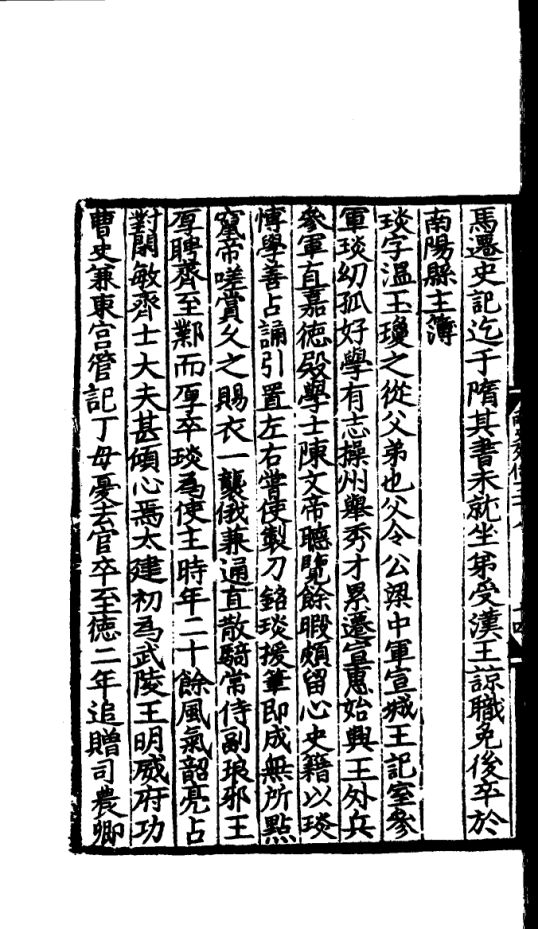 馬遷史記迄于隋其書未就坐弟受漢王諒職免後卒於
南陽縣主簿
琰字溫玉瓊之從父弟也父令公梁中軍宣城王記室參
軍琰幼孤好學有志操州舉秀才累遷宣惠始興王外兵
參軍直嘉德殿學士陳文帝聽覽餘暇頗留心史籍以琰
愽學善占誦引置左右嘗使製刀銘琰援筆即成無所點
竄帝嗟賞乆之賜衣一襲俄兼通直散騎常侍副琅邪王
厚聘齊至鄴而厚卒琰為使主時年二十餘風氣韶亮占
對閑敏齊士大夫甚傾心焉太建初為武陵王明威府功
曹史兼東宮管記丁母憂去官卒至德二年追贈司農卿